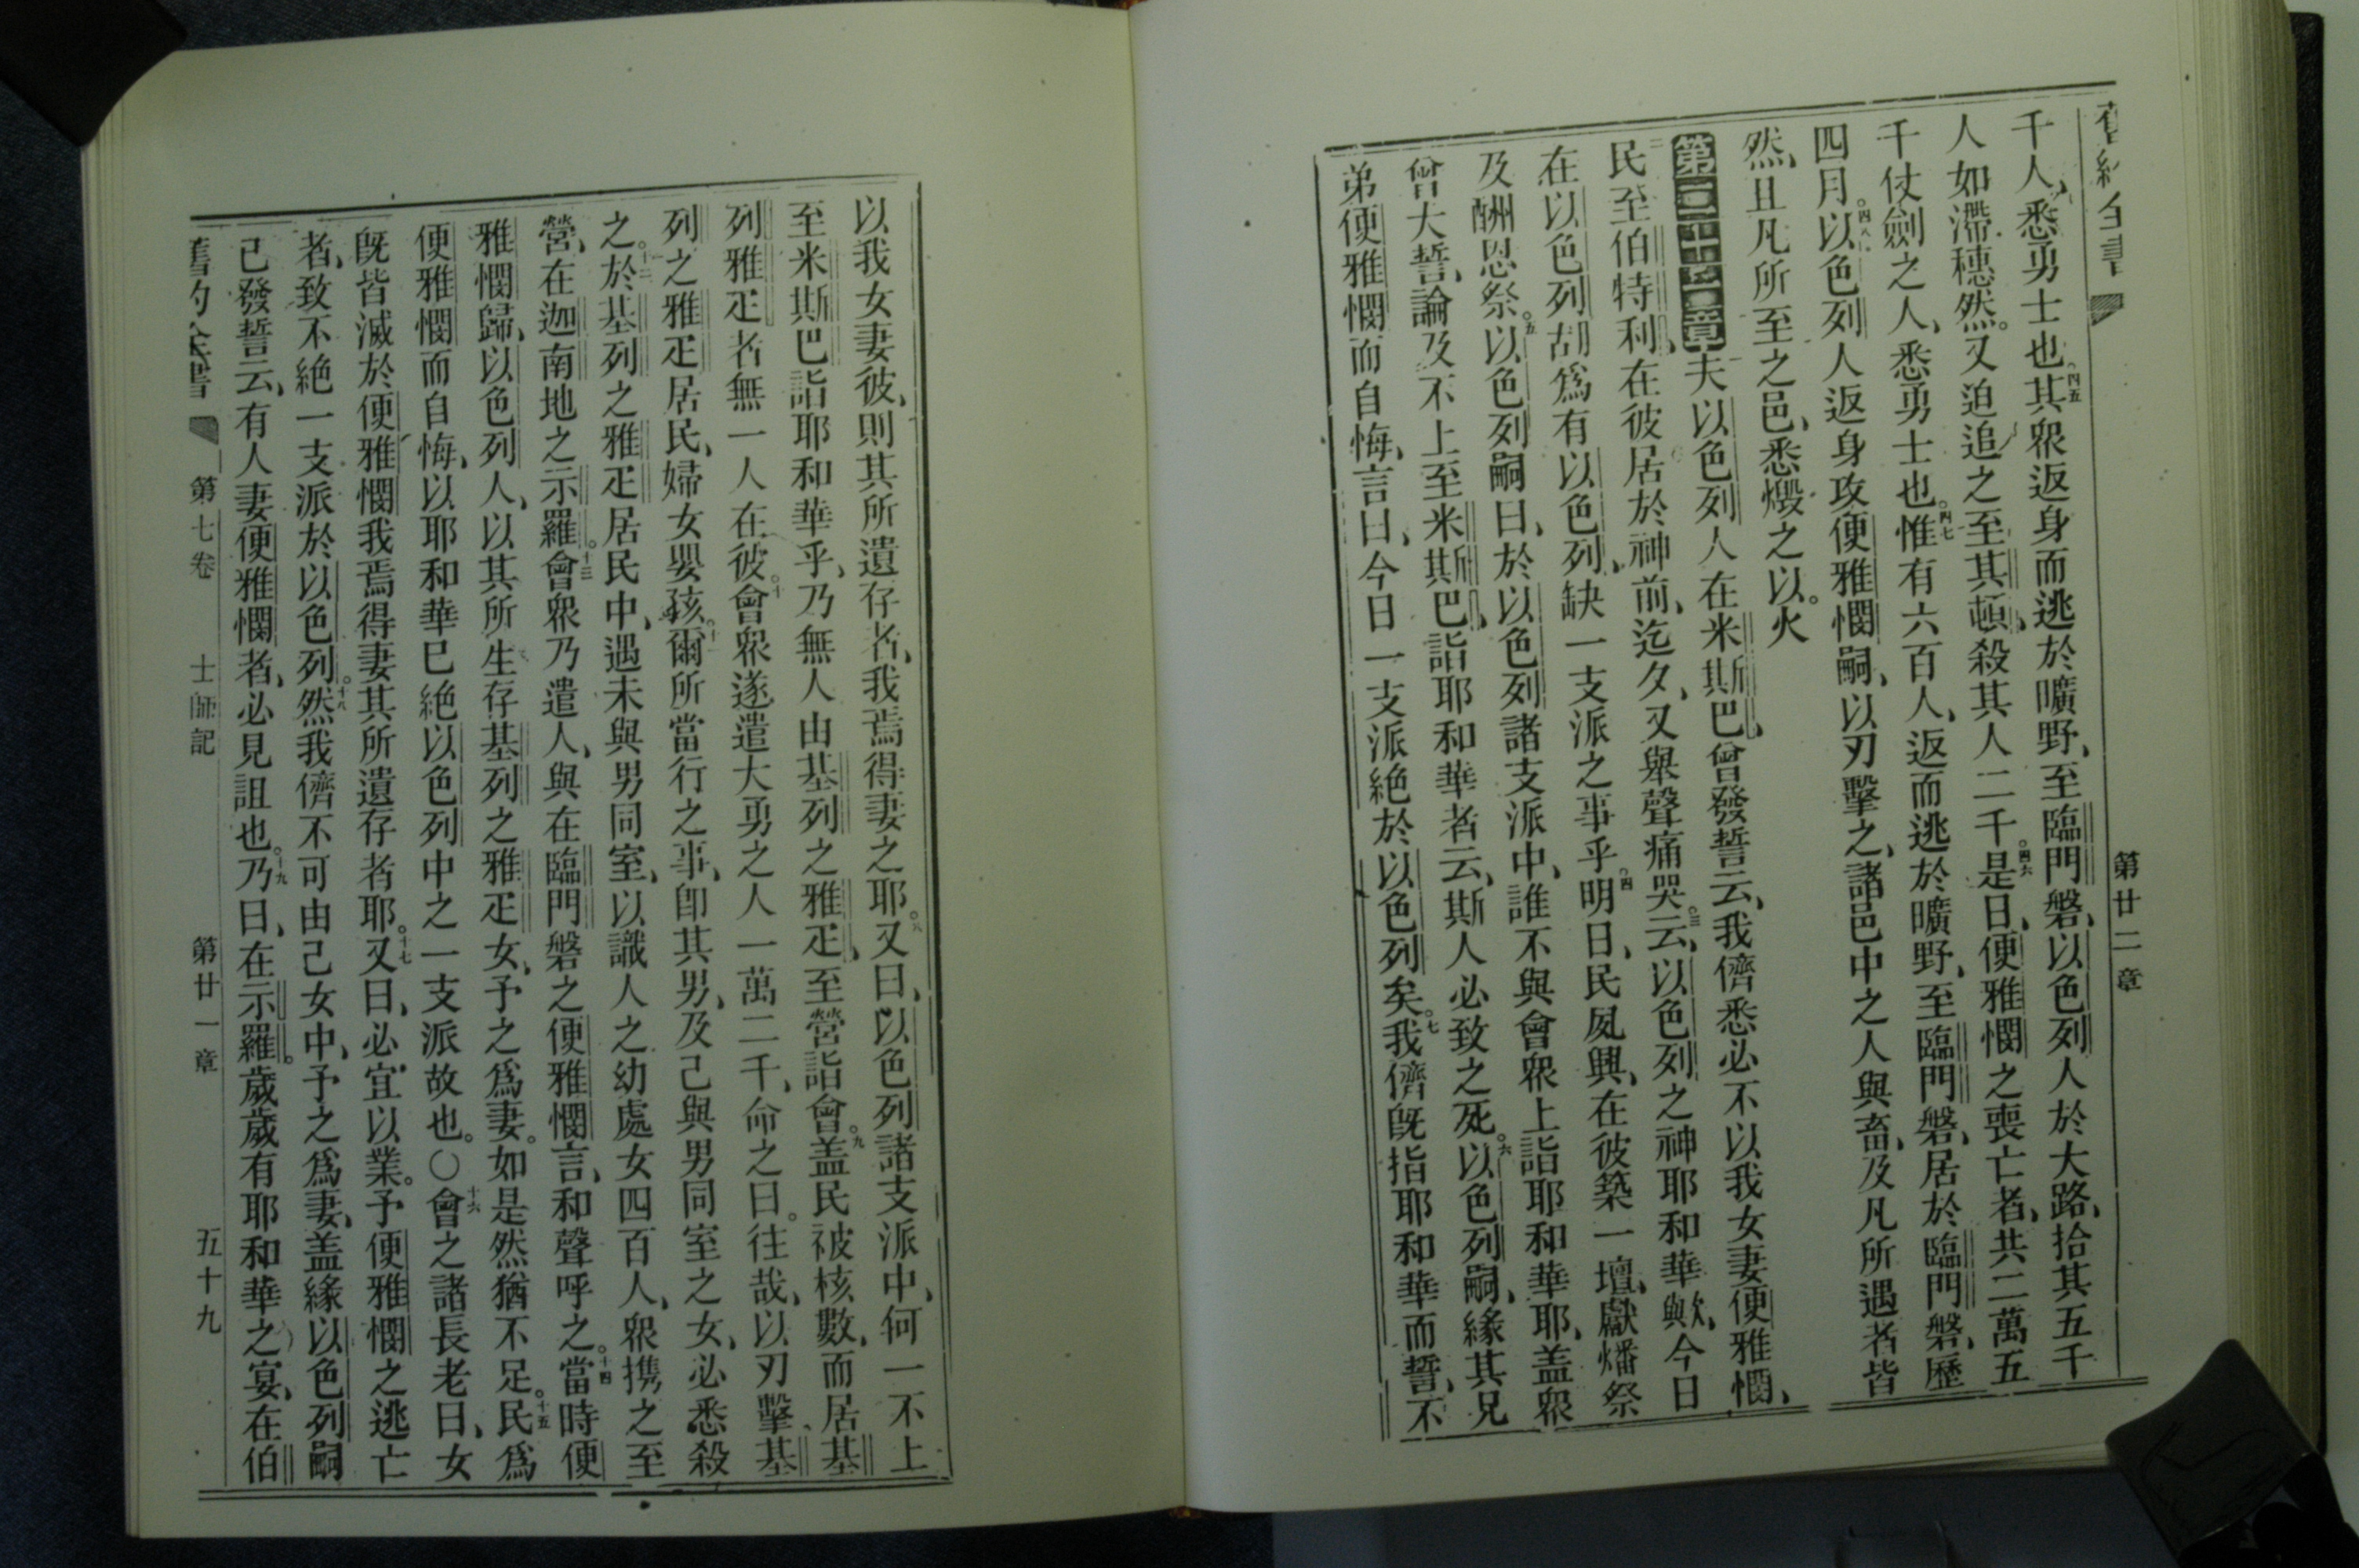 舊約全書 第廿二章
千人、悉勇士也。四五其眾返身而逃於曠野、至臨門磐、以色列人於大路、拾其五千
人如滯穗然。又迫追之至其頓、殺其人二千。四六是日、便雅憫之喪亡者、共二萬五
千仗劍之人、悉勇士也。四七惟有六百人、返而逃於曠野、至臨門磐、居於臨門磐、歷
四月。四八以色列人返身攻便雅憫嗣、以刃擊之、諸邑中之人與畜、及凡所遇者皆
然、且凡所至之邑、悉燬之以火。
第二十一章夫以色列人在米斯巴、曾發誓云、我儕悉必不以我女妻便雅憫、
民至伯特利、在彼居於神前、迄夕、又舉聲痛哭。三云、以色列之神耶和華歟、今日
在以色列胡爲有以色列、缺一支派之事乎。四明日、民夙興、在彼築一壇、獻燔祭
及酬恩祭。五以色列嗣曰、於以色列諸支派中、誰不與會眾上詣耶和華耶、盖眾
曾大誓、論及不上至米斯巴、詣耶和華者云、斯人必致之死。六以色列嗣、緣其兄
弟便雅憫而自悔、言曰、今日一支派絕於以色列矣。七我儕既指耶和華而誓、不
以我女妻彼、則其所遺存者、我焉得妻之耶。八又曰、以色列諸支派中、何一不上
至米斯巴詣耶和華乎、乃無人由基列之雅疋、至營詣會。九盖民被核數、而居基
列雅疋者無一人在彼。十會眾遂遣大勇之人一萬二千、命之曰。往哉、以刃擊基
列之雅疋居民、婦女嬰孩。十一爾所當行之事、卽其男、及己與男同室之女、必悉殺
之。十二於基列之雅疋居民中、遇未與男同室、以識人之幼處女四百人、眾携之至
營、在迦南地之示羅。十三會眾乃遣人、與在臨門磐之便雅憫言、和聲呼之。十四當時便
雅憫歸、以色列人、以其所生存基列之雅疋女、予之爲妻。如是然猶不足。十五民爲
便雅憫而自悔、以耶和華已絕以色列中之一支派故也。○十六會之諸長老曰、女
既皆滅於便雅憫我焉得妻其所遺存者耶。十七又曰、必宜以業。予便雅憫之逃亡
者、致不絕一支派於以色列。十八然我儕不可由己女中、予之爲妻、盖緣以色列嗣
已發誓云、有人妻便雅憫者、必見詛也。十九乃曰、在示羅。歲歲有耶和華之宴、在伯
舊約全書 第七卷 士師記 第廿一章 五十九